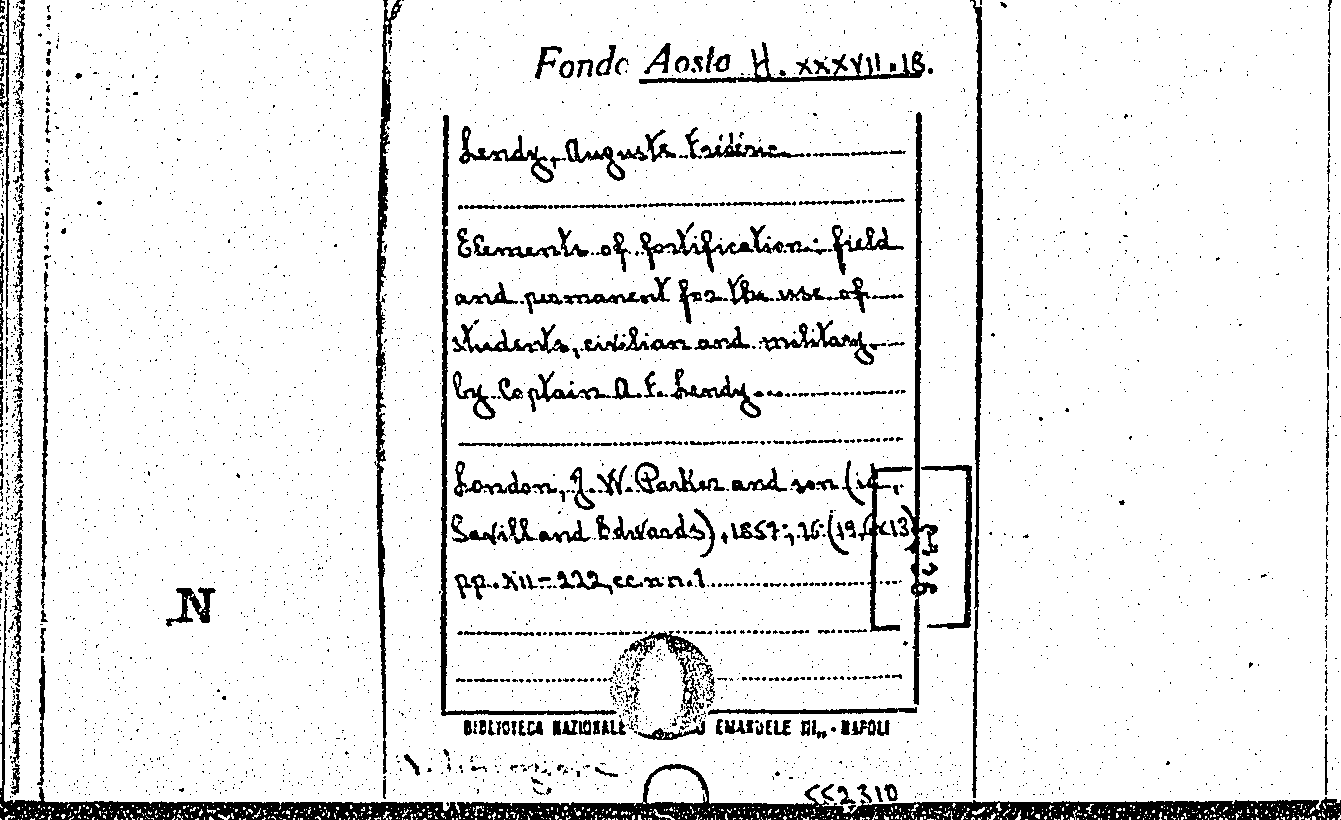 Fondo Aosta H. XXXVII.18.
Lendy, Auguste Frédéric
Elements of fortification: field
and permanent for the use of
students, civilian and military.
by Captain A. F. Lendy
London, J. W. Parker and son (id.,
Savill and Edwards), 1857; 16° (19, x13)
pp. XII-222, cc.nn.1
N
BIBLIOTECA NAZIONALE EMANUELE III,, - NAPOLI
552310